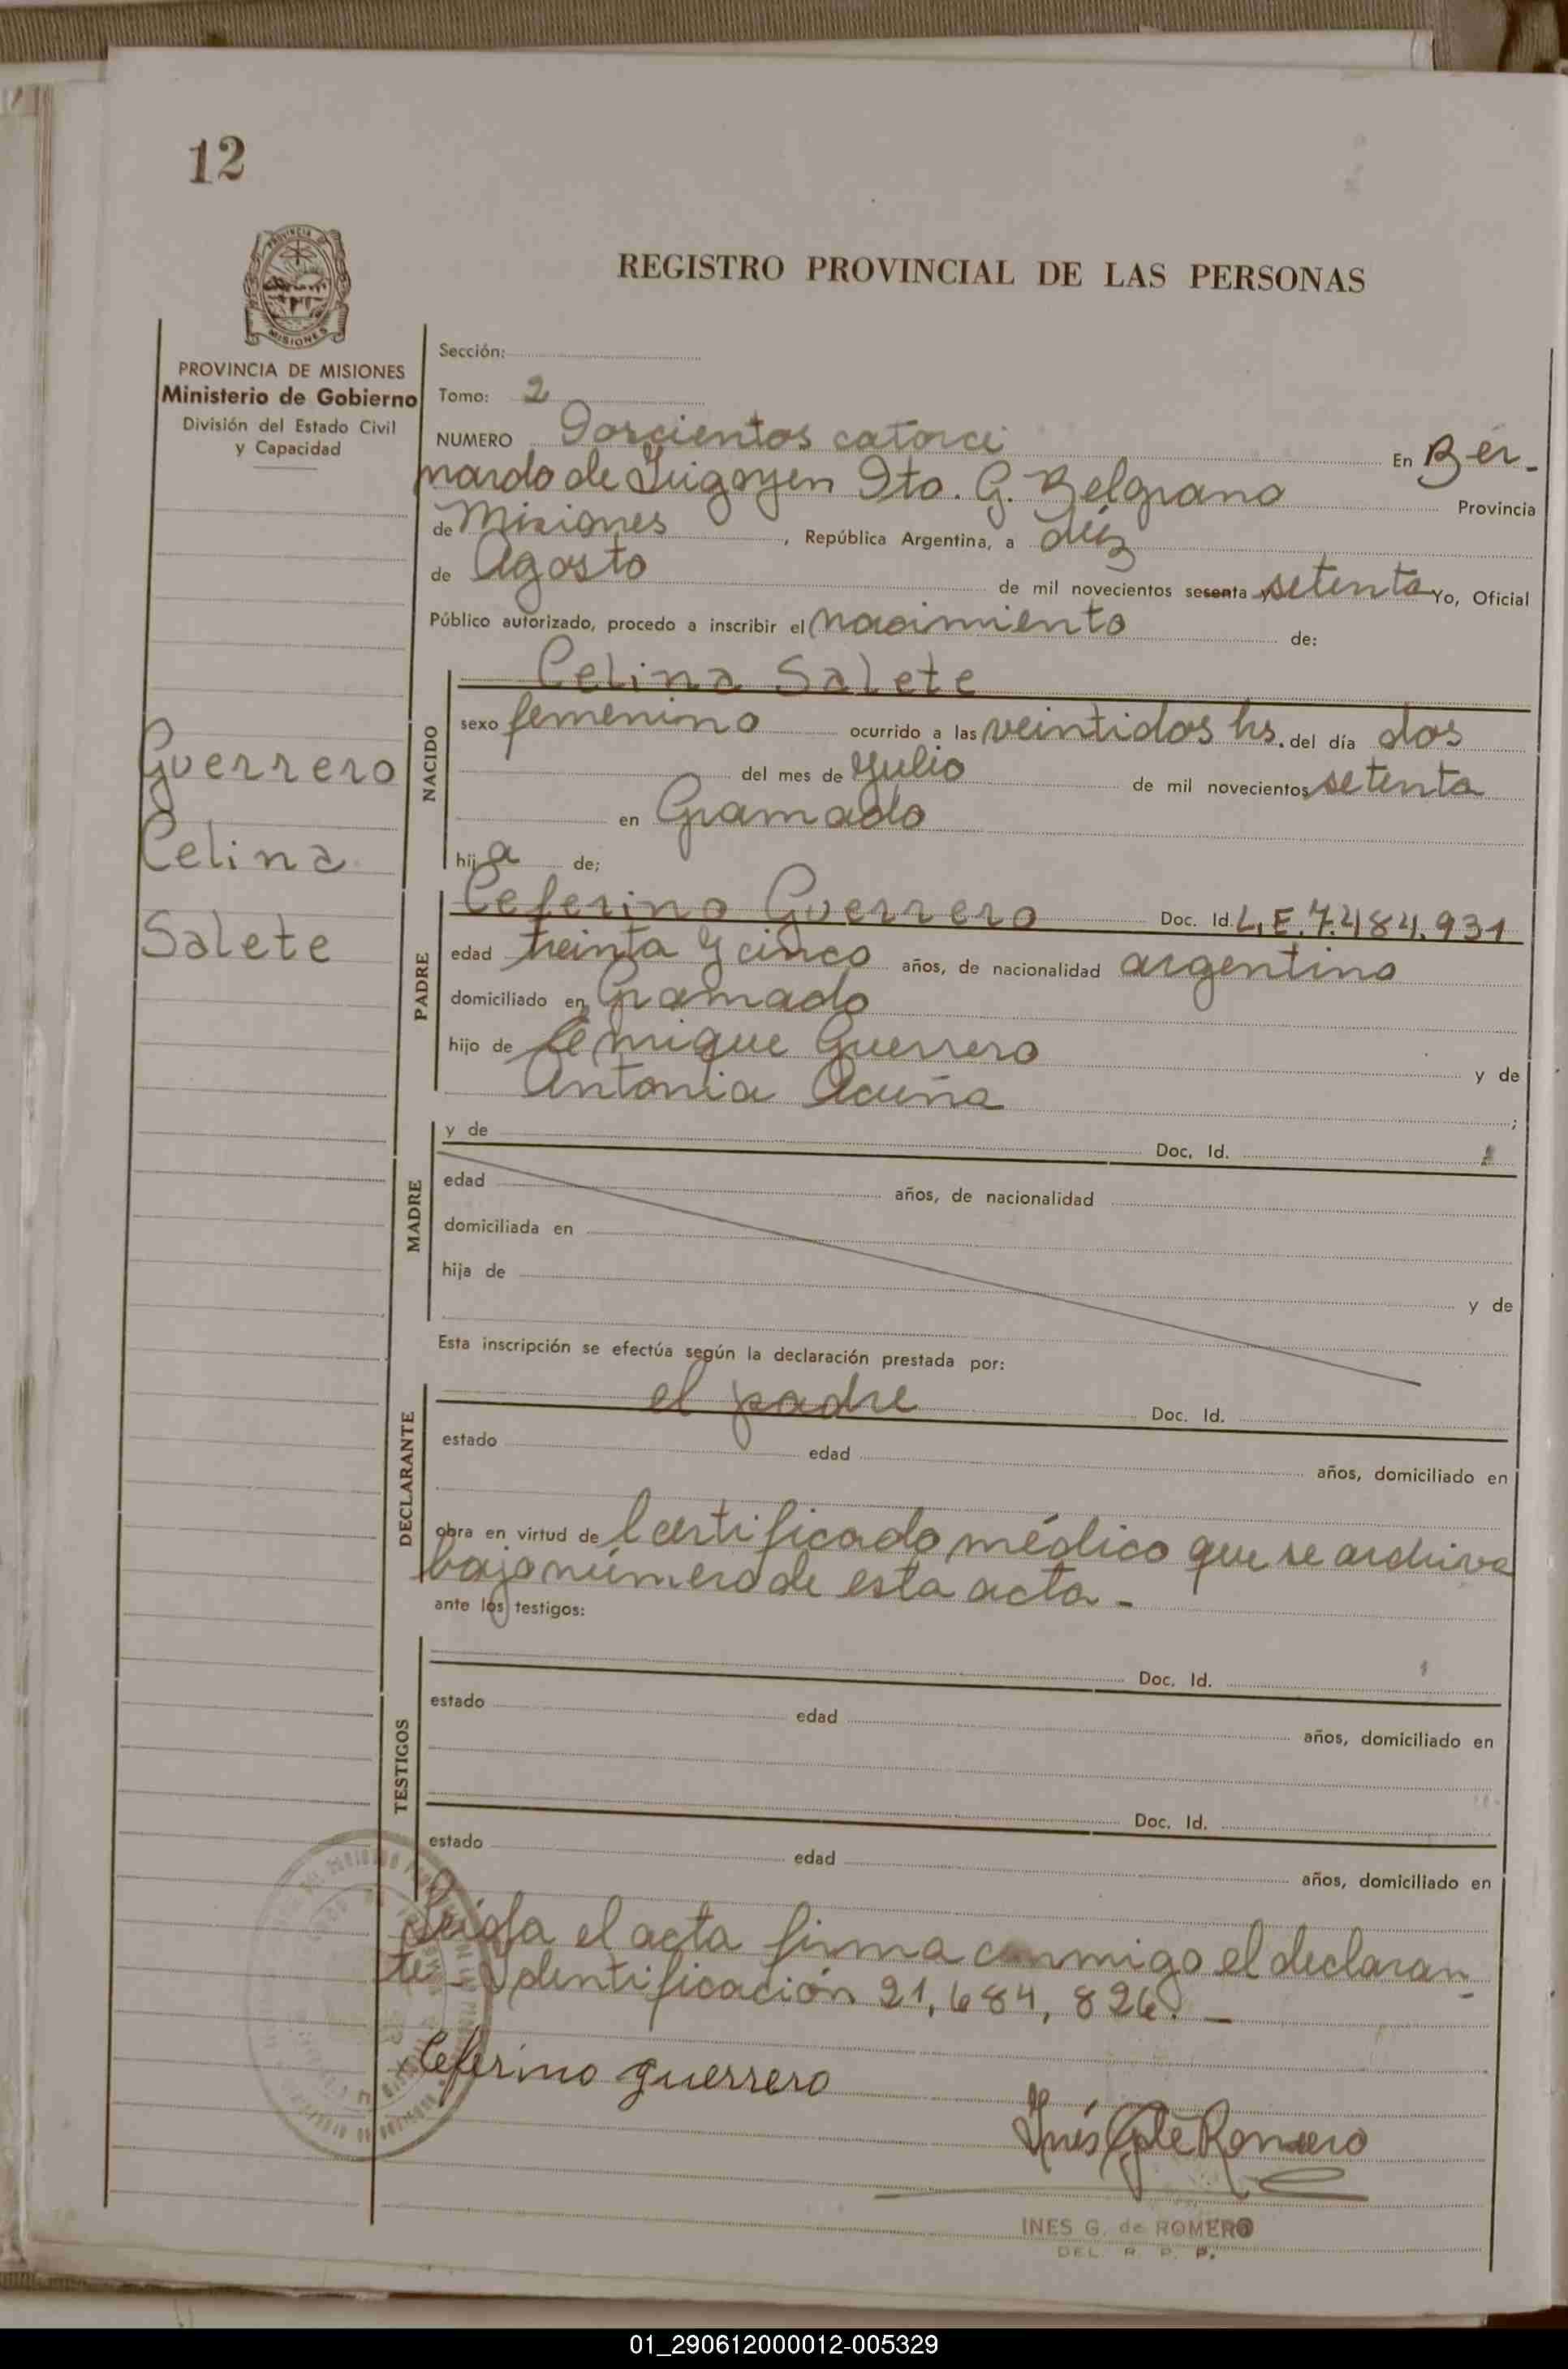 12
PROVINCIA DE MISIONES
REGISTRO PROVINCIAL DE LAS PERSONAS
PROVINCIA DE MISIONES
Ministerio de Gobierno
División del Estado Civil
y Capacidad
Sección:
Tomo: 2
NUMERO Doscientos catorce En Ber-
nardo de Irigoyen Dto. G. Belgrano Provincia
de Misiones, República Argentina, a diéz
de Agosto de mil novecientos sesenta y setenta Yo, Oficial
Público autorizado, procedo a inscribir el nacimiento de:
Guerrero
Celina
Salete
NACIDO
Celina Salete
sexo femenino ocurrido a las veintidos hs. del día dos
del mes de Julio de mil novecientos setenta
en Gramado
hija de;
PADRE
Ceferino Guerrero Doc. Id. L.E. 7.484.931
edad treinta y cinco años, de nacionalidad argentino
domiciliado en Gramado
hijo de Enrique Guerrero y de
Antonia Acuña ;
MADRE
y de Doc. Id.
edad años, de nacionalidad
domiciliada en
hija de y de
Esta inscripción se efectúa según la declaración prestada por:
DECLARANTE
el padre Doc. Id.
estado edad años, domiciliado en
obra en virtud de Certificado médico que se archiva
bajo número de esta acta -
ante los testigos:
TESTIGOS
Doc. Id.
estado edad años, domiciliado en
Doc. Id.
estado edad años, domiciliado en
Leída el acta firma conmigo el declaran-
te - Identificación 21,684,826. -
Ceferino guerrero
Inés G de Romero
INES G. de ROMERO
DEL. R. P. P.
01_290612000012-005329